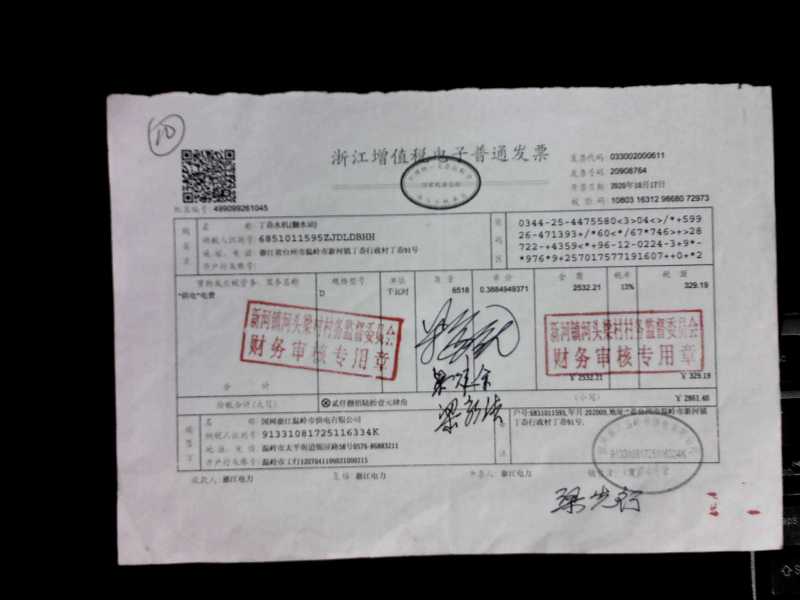 10
浙江增值税电子普通发票
发票代码 033002000611
发票号码 20908764
开票日期 2020年10月17日
校验码 10803 16312 98680 72973
机器编号: 499099261045
名称: 丁岙水机(翻水站)
纳税人识别号: 6851011595ZJDLDBHH
地址、电话: 浙江省台州市温岭市新河镇丁岙行政村丁岙91号
开户行及账号:
0344-25-4475580<3>04<>/*+599
26-471393+/*60<*/67*746>+>28
722-+4359<*+96-12-0224-3+9*-
*976*9+257017577191607++0+*2
货物或应税劳务、服务名称 规格型号 单位 数量 单价 金额 税率 税额
*供电*电费 D 千瓦时 6518 0.3884949371 2532.21 13% 329.19
新河镇河头梁村村务监督委员会
财务审核专用章
新河镇河头梁村村务监督委员会
财务审核专用章
合计 ¥2532.21 ¥329.19
价税合计(大写) 贰仟捌佰陆拾壹元肆角 (小写) ¥2861.40
名称: 国网浙江温岭市供电有限公司
纳税人识别号: 91331081725116334K
地址、电话: 温岭市太平街道锦屏路58号0576-86883211
开户行及账号: 温岭市工行1207041109021000215
户号:6851011595,年月 202009,地址
丁岙行政村丁岙91号.
91331081725116334K
收款人: 浙江电力 复核: 浙江电力 开票人: 浙江电力